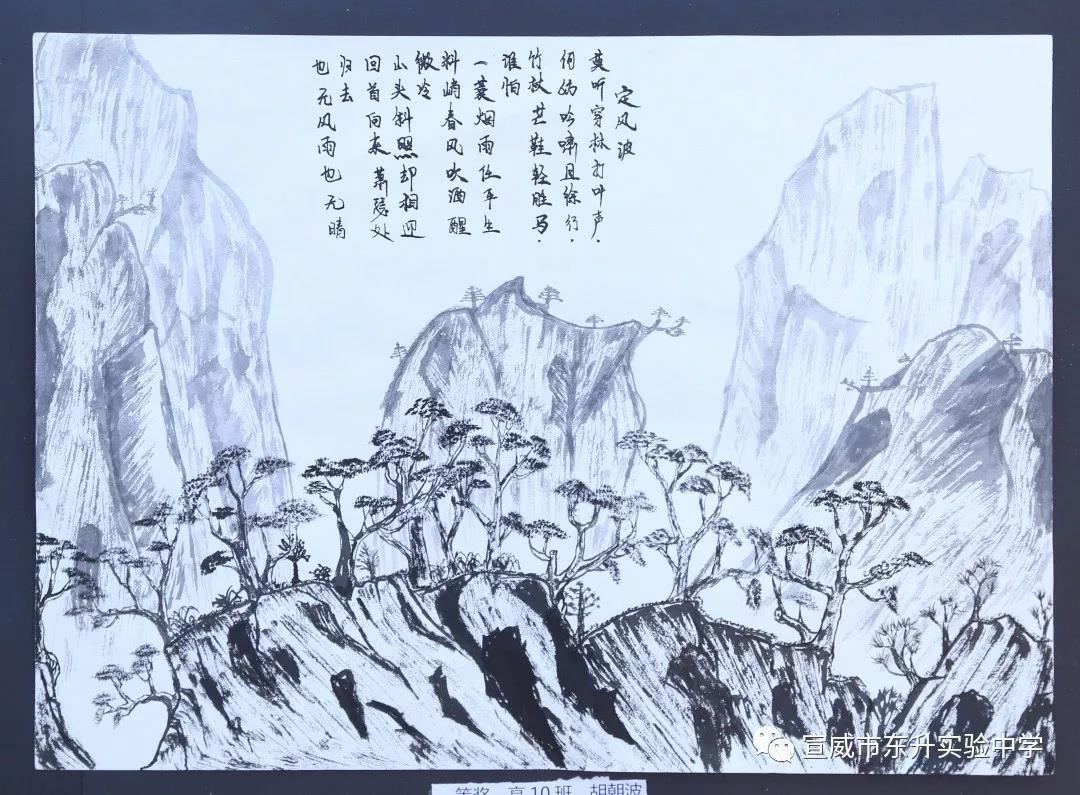 定风波
莫听穿林打叶声.
何妨吟啸且徐行.
竹杖芒鞋轻胜马.
谁怕
一蓑烟雨任平生
料峭春风吹酒醒
微冷
山头斜照却相迎
回首向来萧瑟处
归去
也无风雨也无晴
宣威市东升实验中学
等奖 高10班 胡朝波